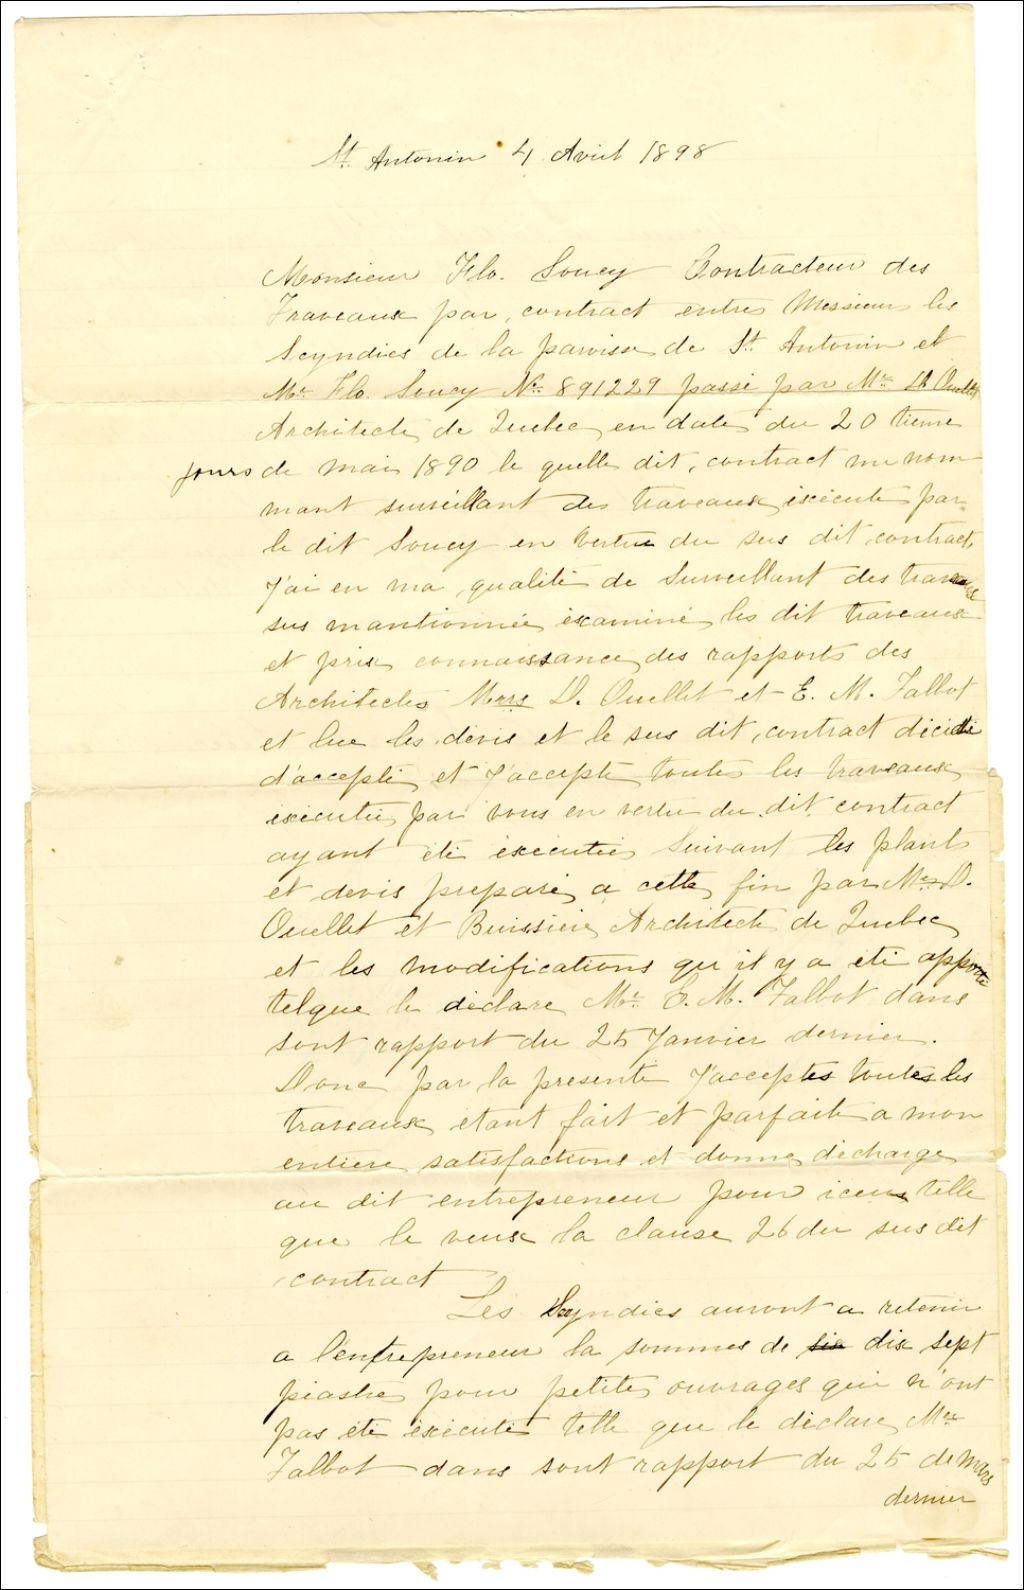 St. Antonin 4 Avril 1898
Monsieur Flo. Soucy Contracteur des
Traveaux par contract entres Messieurs les
Scyndics de la paroisse de St. Antonin et
Mr. Flo. Soucy No. 891229 passé par Mr. D. Ouellet
Architecte de Quebec en date du 20 tieme
jours de mai 1890 le quelle dit contract me nom-
mant surveillant des traveaux éxécuté par
le dit Soucy en vertue du sus dit contract,
J'ai en ma qualité de Surveillant des traveaux
sus mantionnée éxaminé les dit traveaux
et prix connaissance des rapports des
Architectes Mrrs D. Ouellet et E. M. Talbot
et lue les devis et le sus dit contract décidé
d'accepté et J'accepte toutes les traveaux
éxécutée par vous en vertu du dit contract
ayant été éxécutée Suivant les plants
et devis preparé a cette fin par Mr. D.
Ouellet et Buissière Architecte de Quebec
et les modifications qu'il y a été apporté
telque le déclare Mr. E. M. Talbot dans
sont rapport du 25 Janvier dernier.
Donc par la presente J'acceptes toutes les
traveaux etant fait et parfaite a mon
entiere satisfactions et donne décharge
au dit entrepreneur pour iceux telle
que le veux la clause 26 du sus dit
contract
Les Scyndics auront a retenir
a l'entrepreneur la sommes de six dix sept
piastre pour petite ouvrages qui n'ont
pas été éxécuté telle que le déclare Mr
Talbot dans sont rapport du 25 de mars
dernier